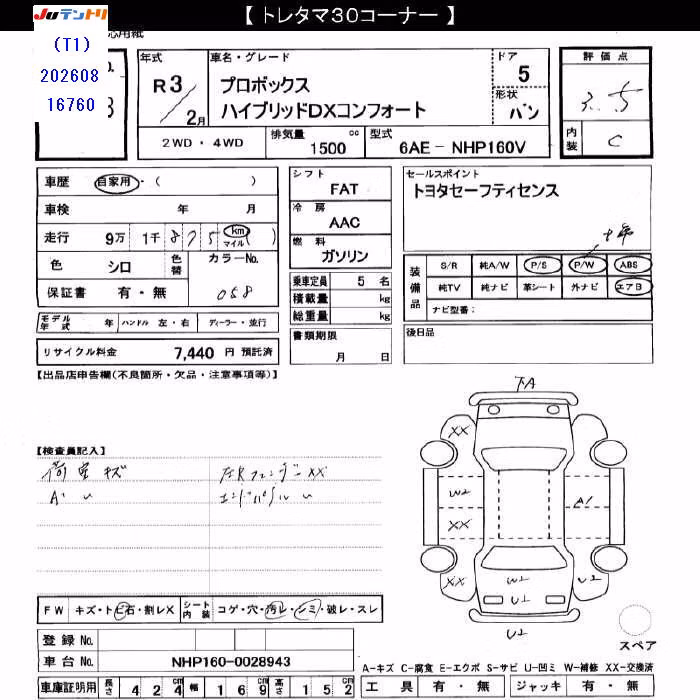 【 トレタマ30コーナー 】
JUテントリ
(T1)
202608
16760
応用紙
年式
R3/2月
車名・グレード
プロボックス
ハイブリッドDXコンフォート
ドア
5
形状
バン
評価点
3.5
内装
C
2WD・4WD
排気量
1500 cc
型式
6AE - NHP160V
車歴 自家用・( )
車検 年 月
走行 9万 1千 875 km マイル ( )
色 シロ 色替 カラーNo. 058
保証書 有・無
シフト
FAT
冷房
AAC
燃料
ガソリン
乗車定員 5 名
積載量 kg
総重量 kg
書類期限
月 日
セールスポイント
トヨタセーフティセンス
装備品
S/R 純A/W P/S P/W ABS
純TV 純ナビ 革シート 外ナビ エアB
ナビ型番:
後日品
モデル年式 年 ハンドル 左・右 ディーラー・並行
リサイクル料金 7,440 円 預託済
【出品店申告欄(不良箇所・欠品・注意事項等)】
【検査員記入】
荷室キズ
左Rフェンダー XX
A' 〃
エンドパネル 〃
下A
XX
W2
XX
XX
A1
W2
U1
U2
U2
FW キズ・トビ石・割レX シート内装 コゲ・穴・汚レ・シミ・破レ・スレ
登録 No.
車台 No. NHP160-0028943
車庫証明用 長さ 424 cm 幅 169 cm 高さ 152 cm
スペア
A-キズ C-腐食 E-エクボ S-サビ U-凹ミ W-補修 XX-交換済
工具 有・無 ジャッキ 有・無